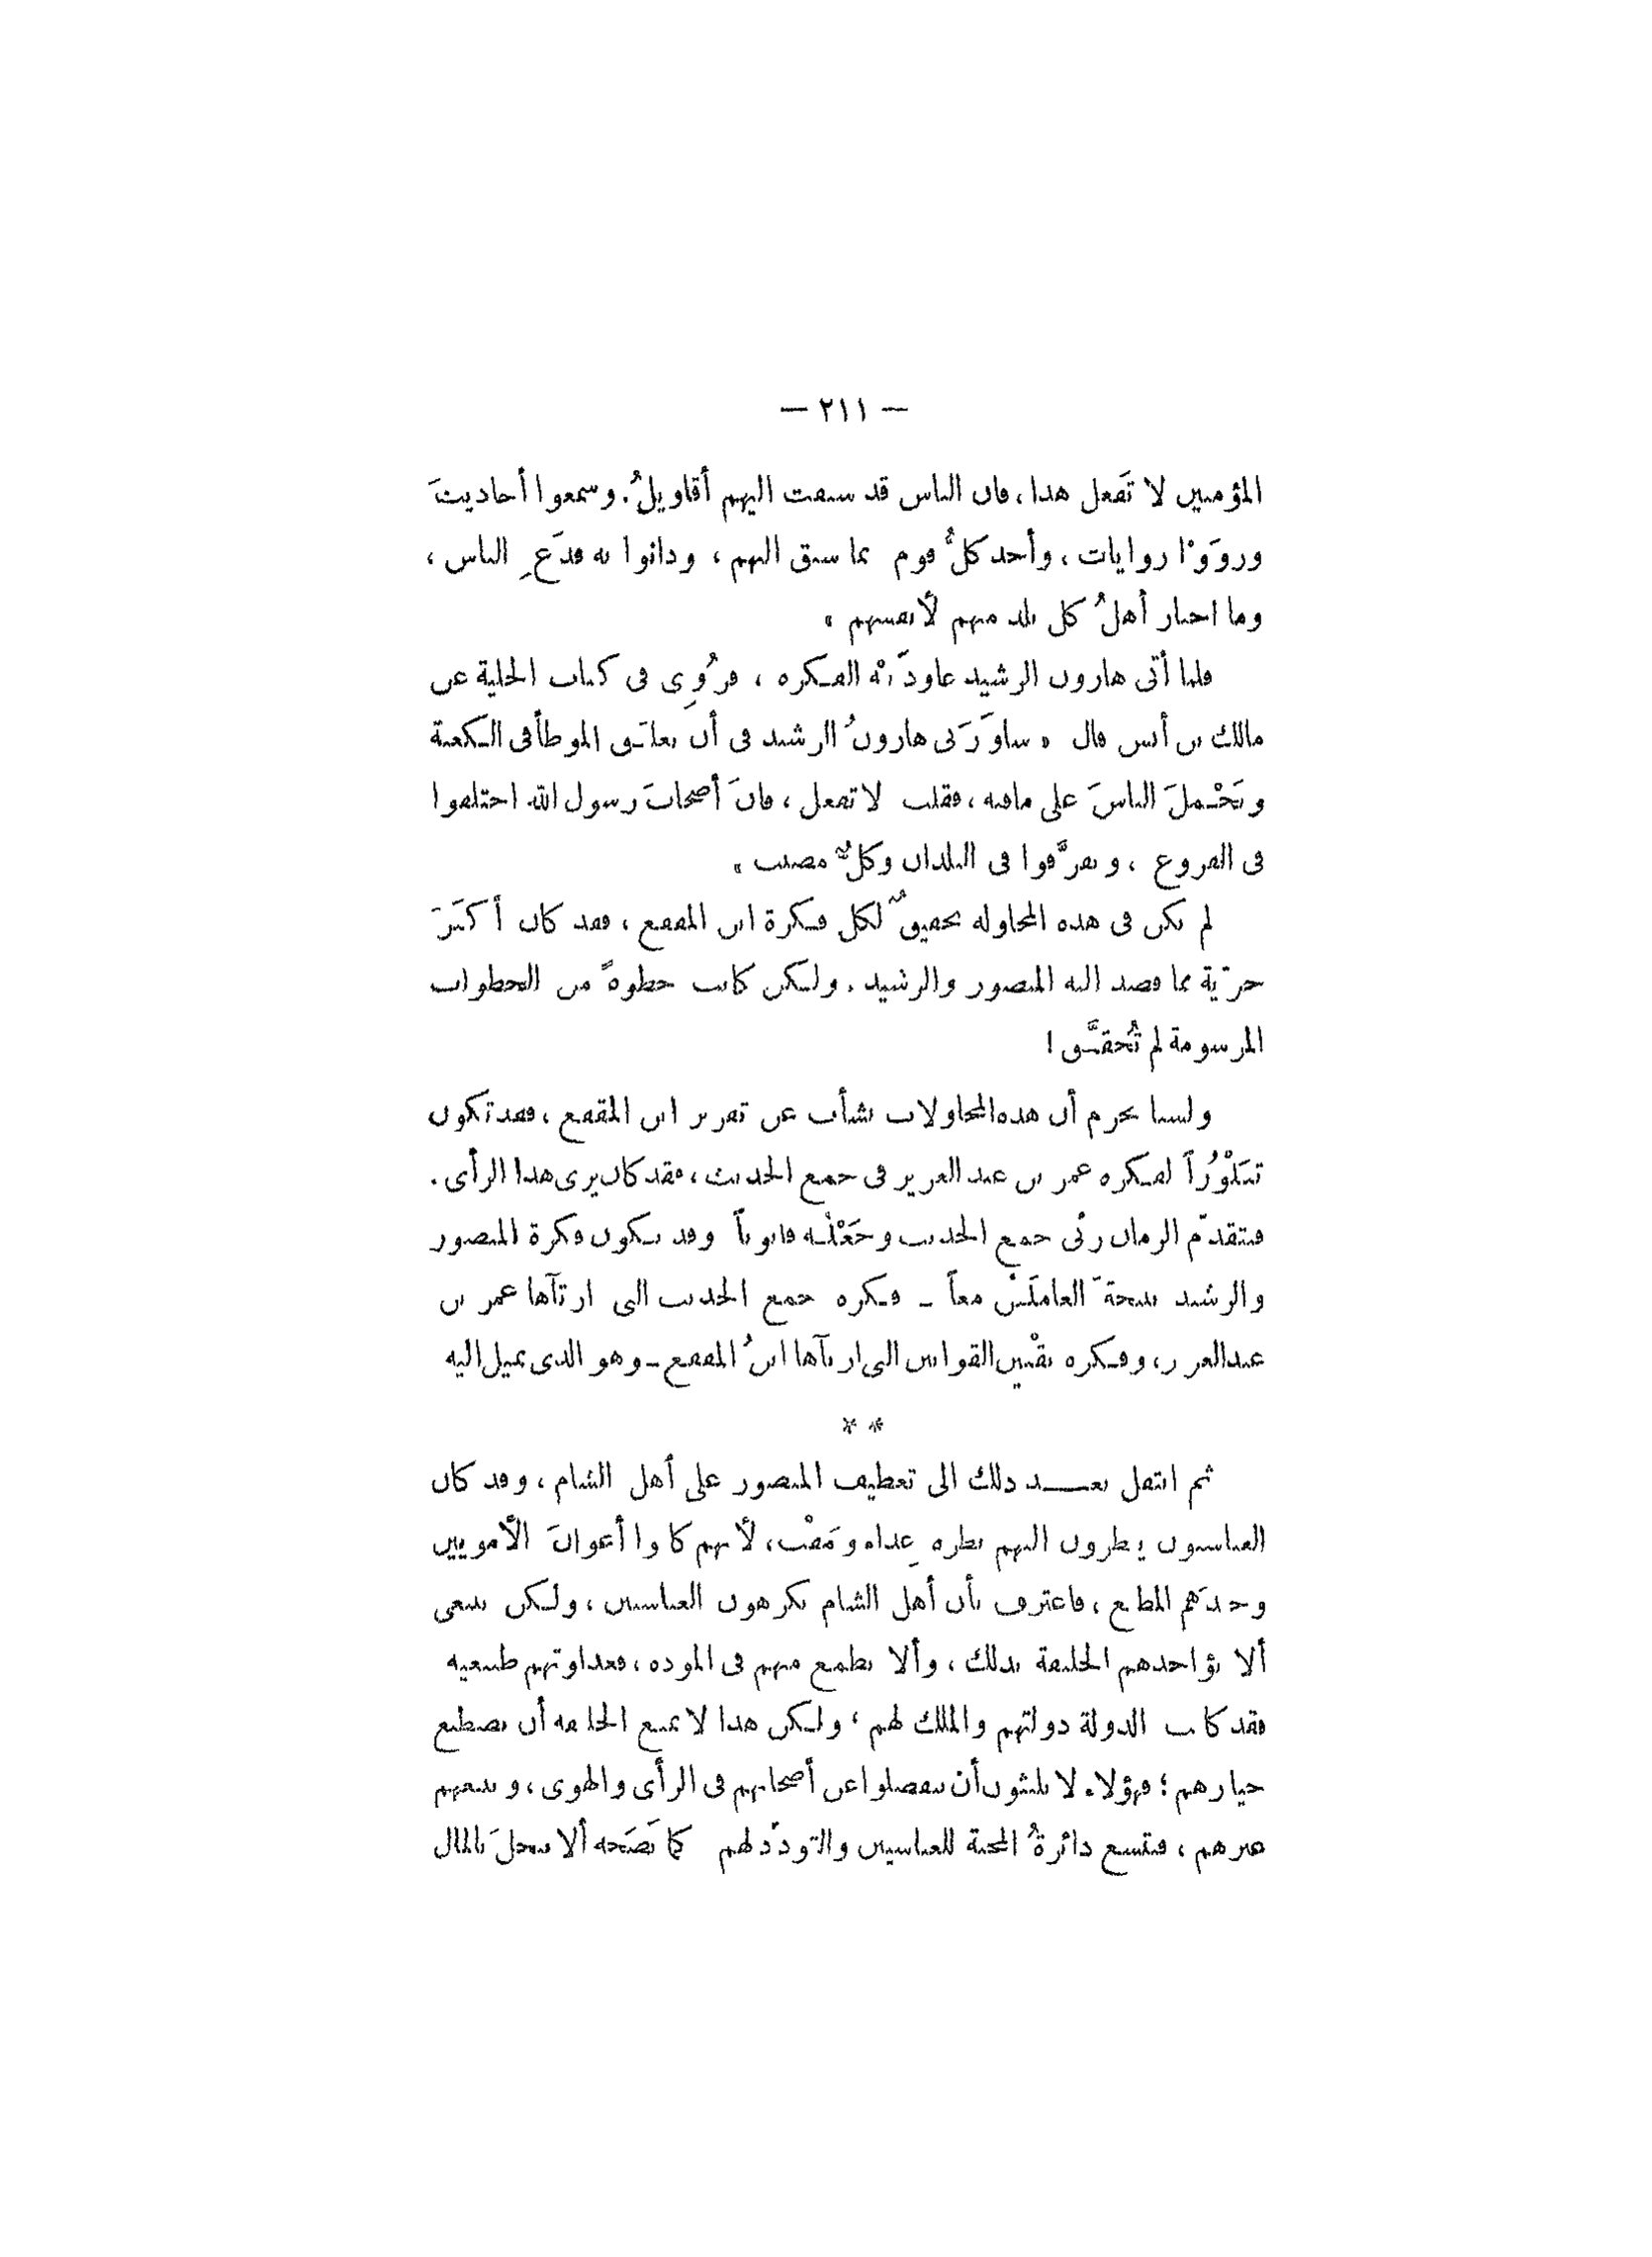 — ٢١١ —
المؤمنين لا تَفعل هذا، فان الناس قد سبقت اليهم أقاويلُ. وسمعوا أحاديثَ
وروَوْا روايات، وأخذ كلُّ قوم بما سبق اليهم، ودانوا به فدَعِ الناس،
وما اختار أهلُ كل بلد منهم لأنفسهم »
فلما أتى هارون الرشيد عاودَتْه الفكرة، فرُوِى فى كتاب الحلية عن
مالك بن أنس قال « شاوَرَنى هارونُ الرشيد فى أن يعلَّق الموطأ فى الكعبة
ويَحْمِلَ الناسَ على ما فيه، فقلت لا تفعل، فانَّ أصحابَ رسول الله اختلفوا
فى الفروع، وتفرَّقوا فى البلدان وكلٌّ مصيب »
لم يكن فى هذه المحاولة تحقيقٌ لكل فكرة ابن المقفع، فقد كان أكثرَ
حرّية مما قصد اليه المنصور والرشيد. ولكن كانت خطوةً من الخطوات
المرسومة لم تُحقَّق !
ولسنا نجزم أن هذه المحاولات نشأت عن تقرير ابن المقفع، فقد تكون
تبَلْوُراً لفكرة عمر بن عبد العزيز فى جمع الحديث، فقد كان يرى هذا الرأى.
فتقدّم الزمان رقّى جمع الحديث وجَعْلَه قانوناً وقد تكون فكرة المنصور
والرشيد نتيجةَ العاملَيْن معاً ـ فكرة جمع الحديث التى ارتآها عمر بن
عبد العزيز، وفكرة تقْنين القوانين التى ارتآها ابنُ المقفع ـ وهو الذى نميل اليه
* *
ثم انتقل بعد ذلك الى تعطيف المنصور على أهل الشام، وقد كان
العباسيون ينظرون اليهم نظرة عِداء ومَقْت، لأنهم كانوا أعوانَ الأمويين
وجندَهم المطيع، فاعترف بأن أهل الشام يكرهون العباسيين، ولكن ينبغى
ألا يؤاخذهم الخليفة بذلك، وألا يطمع منهم فى المودة، فعداوتهم طبيعية
فقد كانت الدولة دولتهم والملك لهم، ولكن هذا لا يمنع الخليفة أن يصطنع
خيارهم؛ فهؤلاء لا يلبثون أن ينفصلوا عن أصحابهم فى الرأى والهوى، ويتبعهم
غيرهم، فتتسع دائرةُ المحبة للعباسيين والتودّد لهم كما نَصَحه ألا يبخلَ بالمال